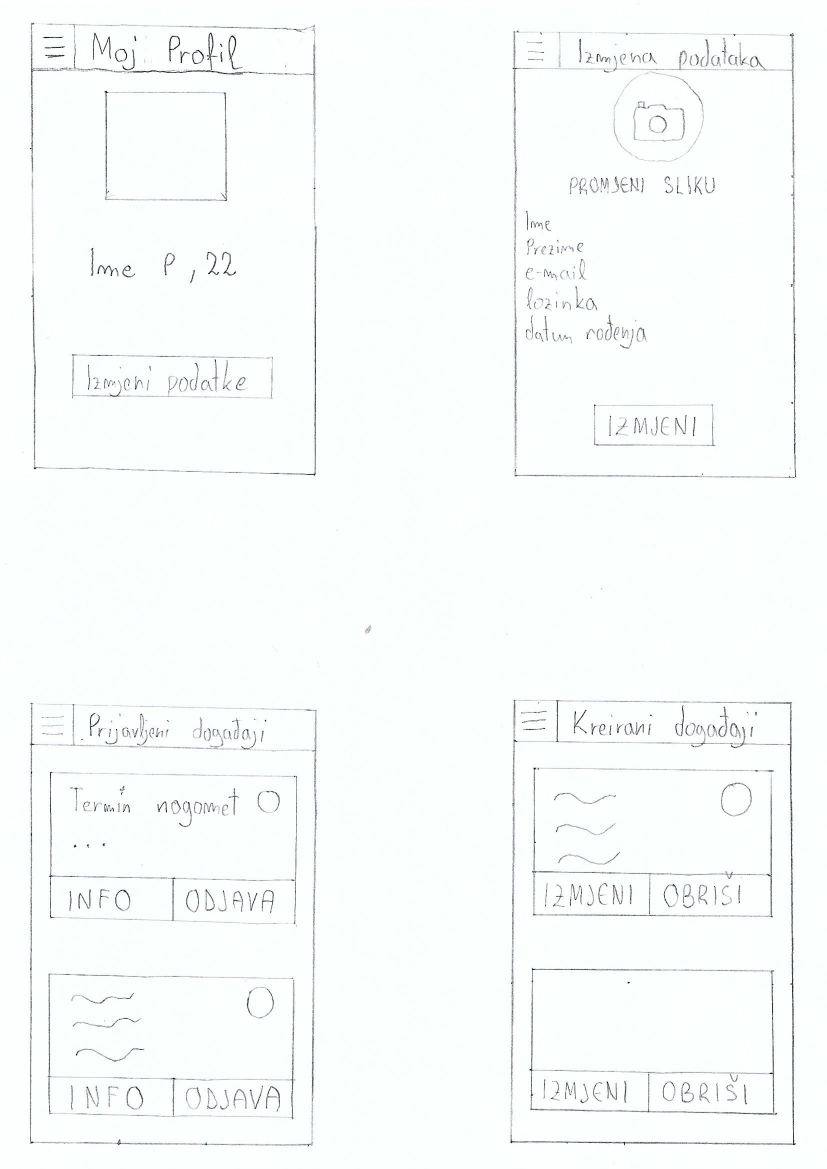 Moj Profil
Ime P, 22
Izmjeni podatke
Izmjena podataka
PROMJENI SLIKU
Ime
Prezime
e-mail
lozinka
datum rođenja
IZMJENI
Prijavljeni događaji
Termin nogomet
...
INFO ODJAVA
INFO ODJAVA
Kreirani događaji
IZMJENI OBRIŠI
IZMJENI OBRIŠI